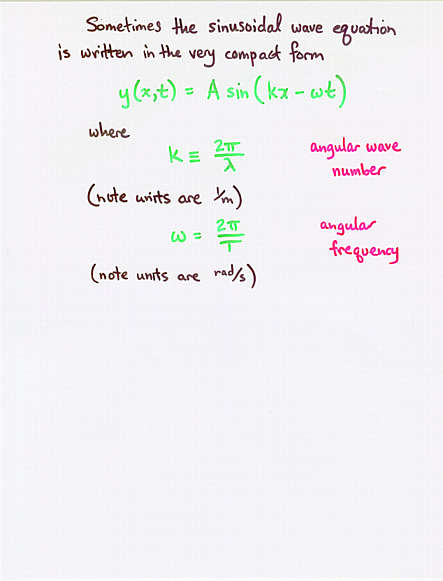 Sometimes the sinusoidal wave equation
is written in the very compact form
y(x,t) = A sin(kx - ωt)
where
k ≡ 2π/λ angular wave
number
(note units are 1/m)
ω = 2π/T angular
frequency
(note units are rad/s)